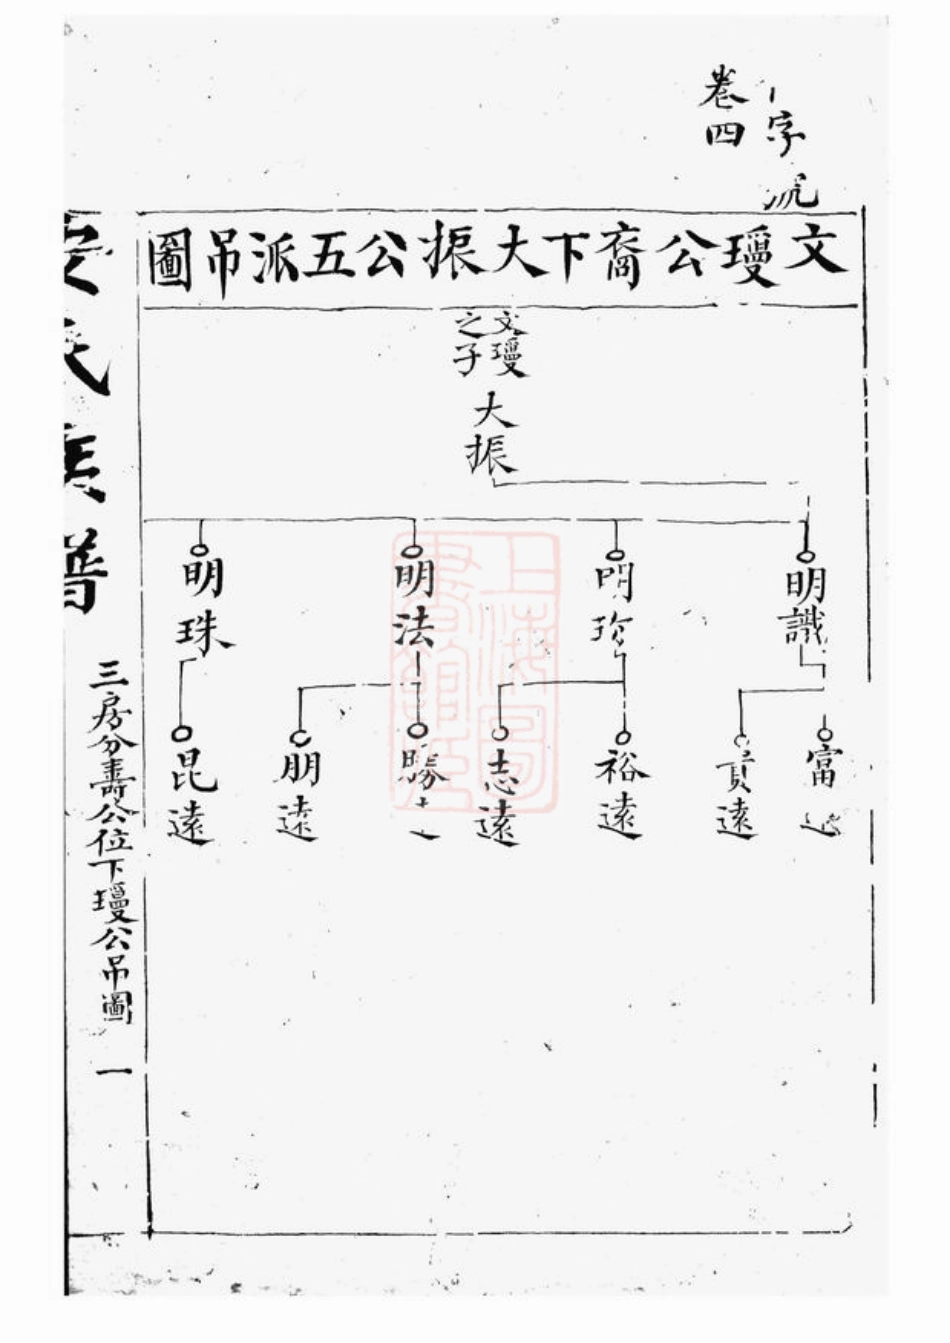 字派
卷四
文瓊公裔下大振公五派吊圖
文瓊
之子
大振
明識
明珍
明法
明珠
富
貴遠
裕遠
志遠
勝
朋遠
昆遠
氏族譜
三房分壽公位下瓊公吊圖
一
上海圖
書館藏